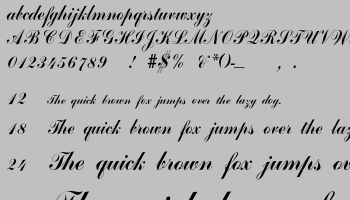 abcdefghijklmnopqrstuvwxyz
ABCDEFGHIJKLMNOPQRSTUVW
0123456789 ! #$% & *()-_ , .
12 The quick brown fox jumps over the lazy dog.
18 The quick brown fox jumps over the laz
24 The quick brown fox jumps ov